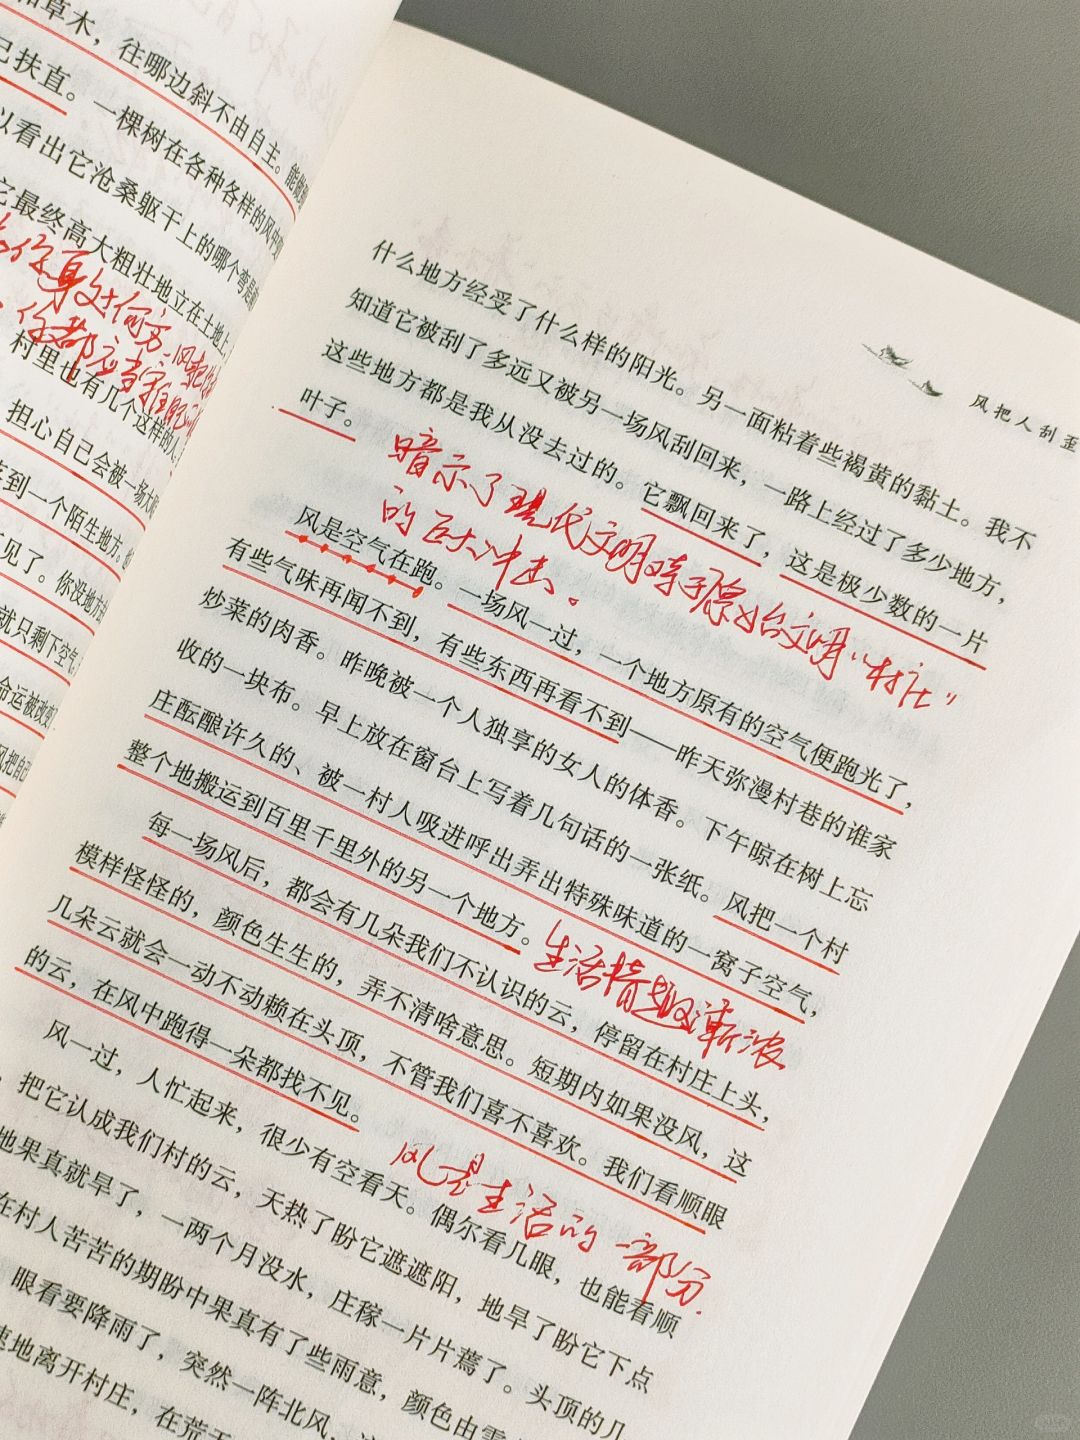 和草木，往哪边斜不由自主。能够
己扶直。一棵树在各种各样的风中
以看出它沧桑躯干上的哪个弯是
它最终高大粗壮地立在土地上
你身处何方
你都应当
村里也有几个这样的人
担心自己会被一场大
到一个陌生地方
见了。你没地方
就只剩下空气
命运被改变
风把自己
风把人刮歪
什么地方经受了什么样的阳光。另一面粘着些褐黄的黏土。我不
知道它被刮了多远又被另一场风刮回来，一路上经过了多少地方，
这些地方都是我从没去过的。它飘回来了，这是极少数的一片
叶子。
暗示了现代文明对于原始文明“村庄”
的巨大冲击。
风是空气在跑。一场风一过，一个地方原有的空气便跑光了，
有些气味再闻不到，有些东西再看不到——昨天弥漫村巷的谁家
炒菜的肉香。昨晚被一个人独享的女人的体香。下午晾在树上忘
收的一块布。早上放在窗台上写着几句话的一张纸。风把一个村
庄酝酿许久的、被一村人吸进呼出弄出特殊味道的一窝子空气，
整个地搬运到百里千里外的另一个地方。
生活情趣渐浓
每一场风后，都会有几朵我们不认识的云，停留在村庄上头，
模样怪怪的，颜色生生的，弄不清啥意思。短期内如果没风，这
几朵云就会一动不动赖在头顶，不管我们喜不喜欢。我们看顺眼
的云，在风中跑得一朵都找不见。
风是生活的一部分.
风一过，人忙起来，很少有空看天。偶尔看几眼，也能看顺
，把它认成我们村的云，天热了盼它遮遮阳，地旱了盼它下点
地果真就旱了，一两个月没水，庄稼一片片蔫了。头顶的几
在村人苦苦的期盼中果真有了些雨意，颜色由雪
眼看要降雨了，突然一阵北风，
速地离开村庄，在荒